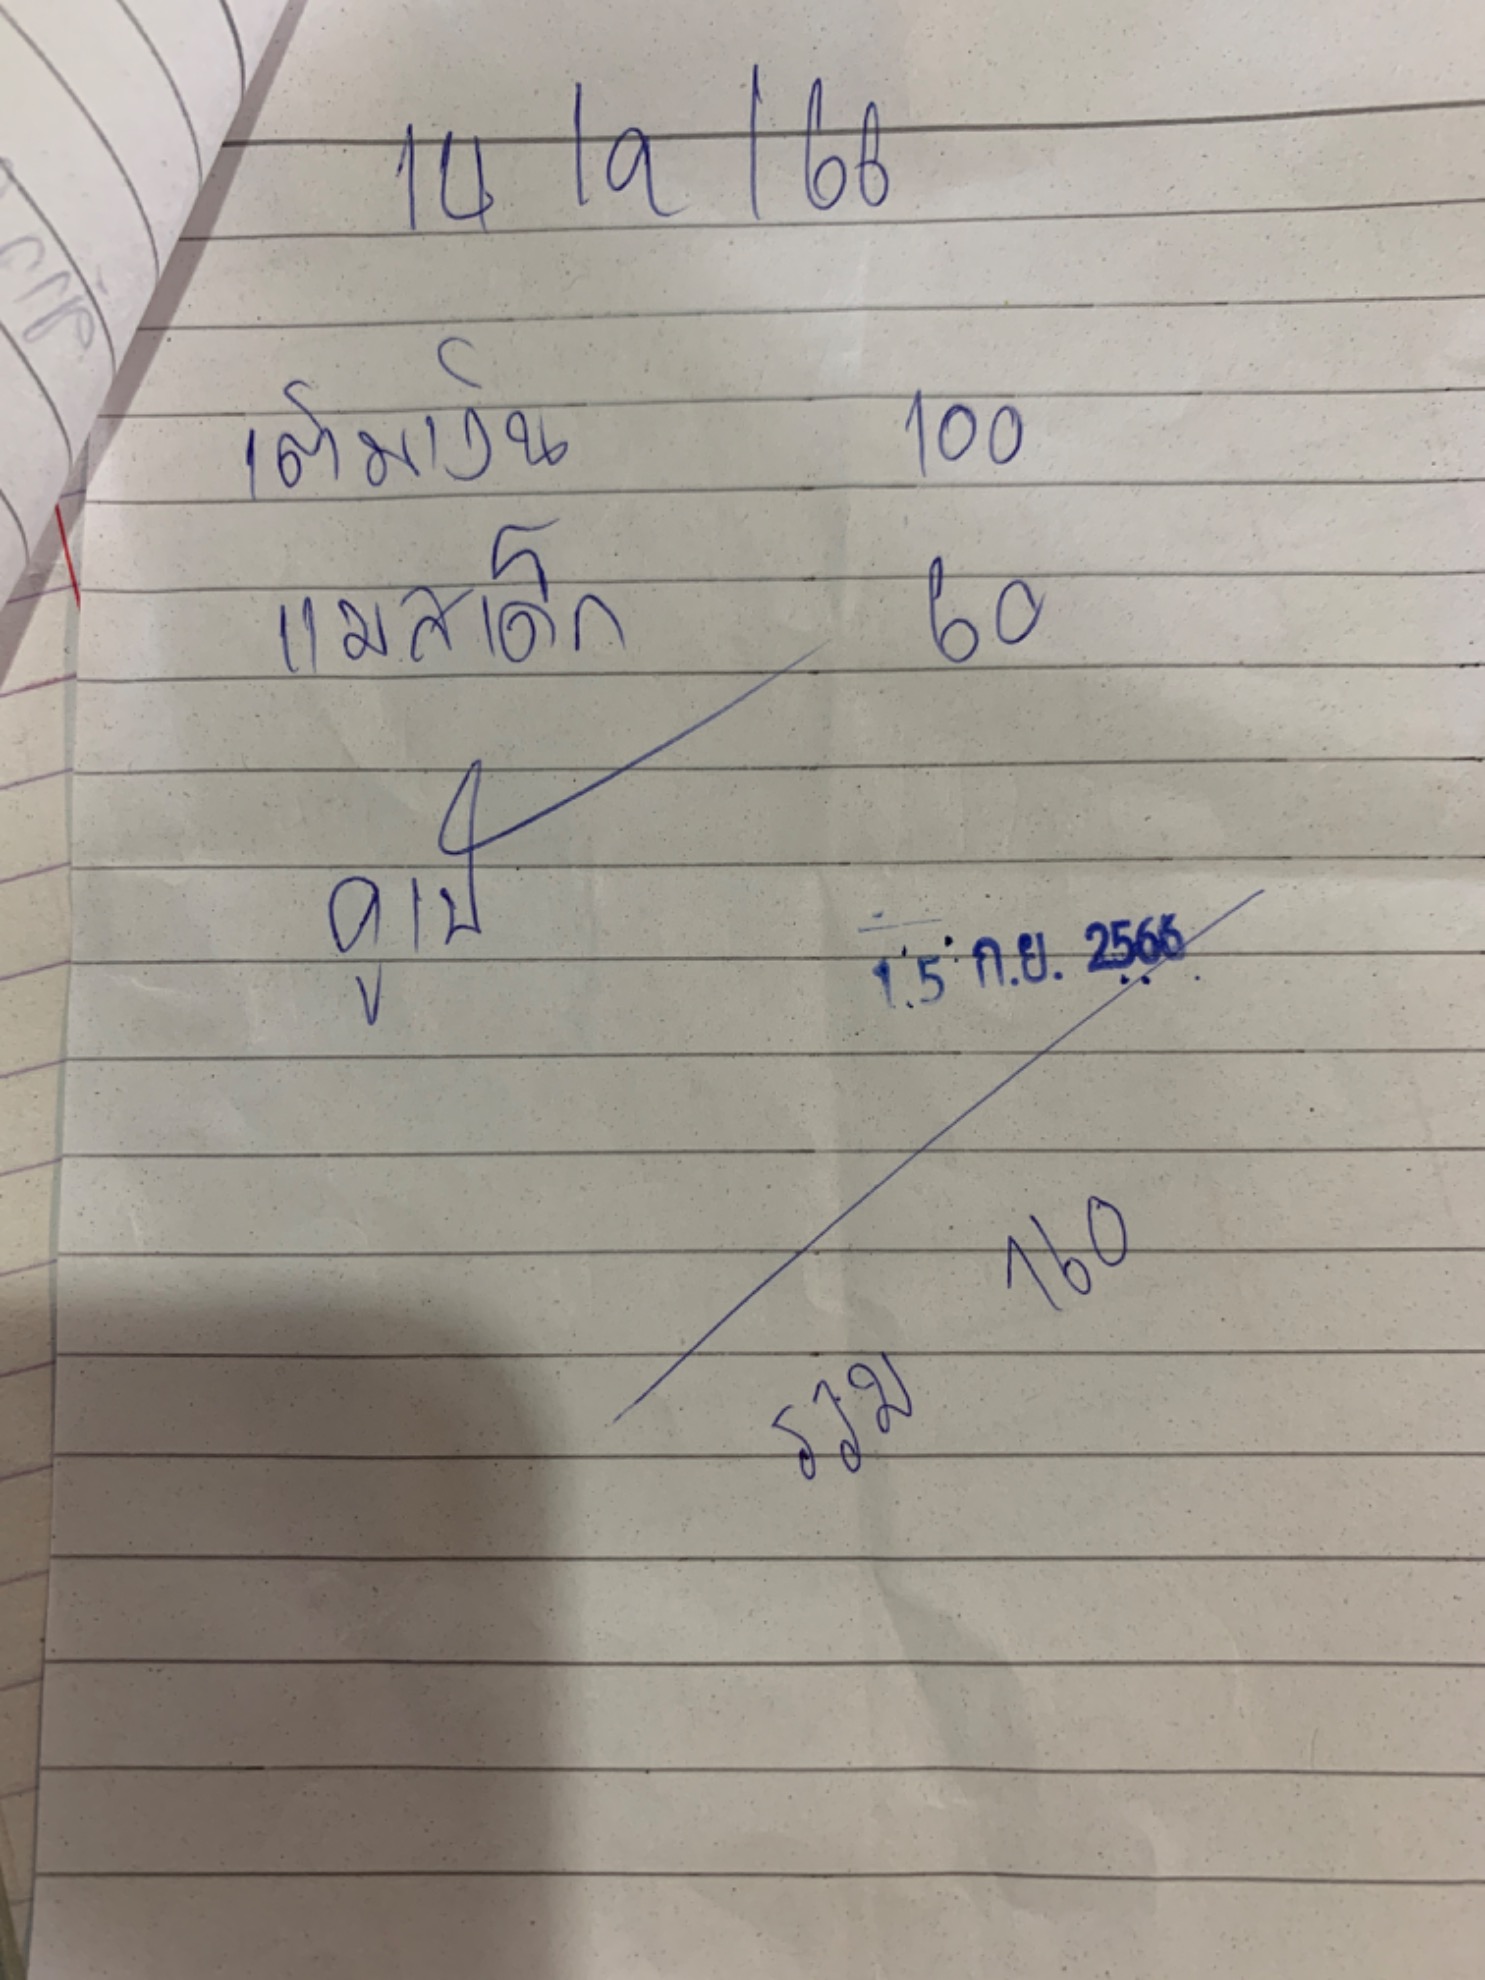 14 / 9 / 66
เติมเงิน 100
แมสเด็ก 60
ดูเป้
15 ก.ย. 2566
รวม 160